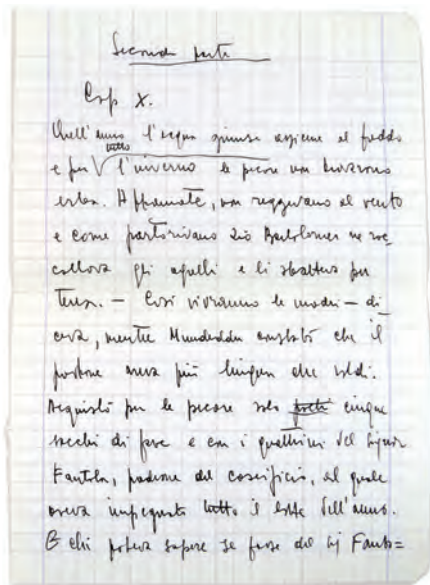 Seconda parte
Cap. X.
Quell'anno l'acqua giunse assieme al freddo
tutto
e per l'inverno le pecore non trovarono
erba. Affamate, non reggevano al vento
e come partorivano Zio Bartolomeo ne rac
coglieva gli agnelli e li sbatteva per
terra. — Così vivranno le madri — di
ceva, mentre Mundeddu constatò che il
padrone aveva più lingua che soldi.
Acquistò per le pecore solo pochi cinque
sacchi di fave e con i quattrini del signor
Fantola, padrone del caseificio, al quale
aveva impegnato tutto il latte dell'anno.
E chi poteva sapere se forse del Sig Fanto=